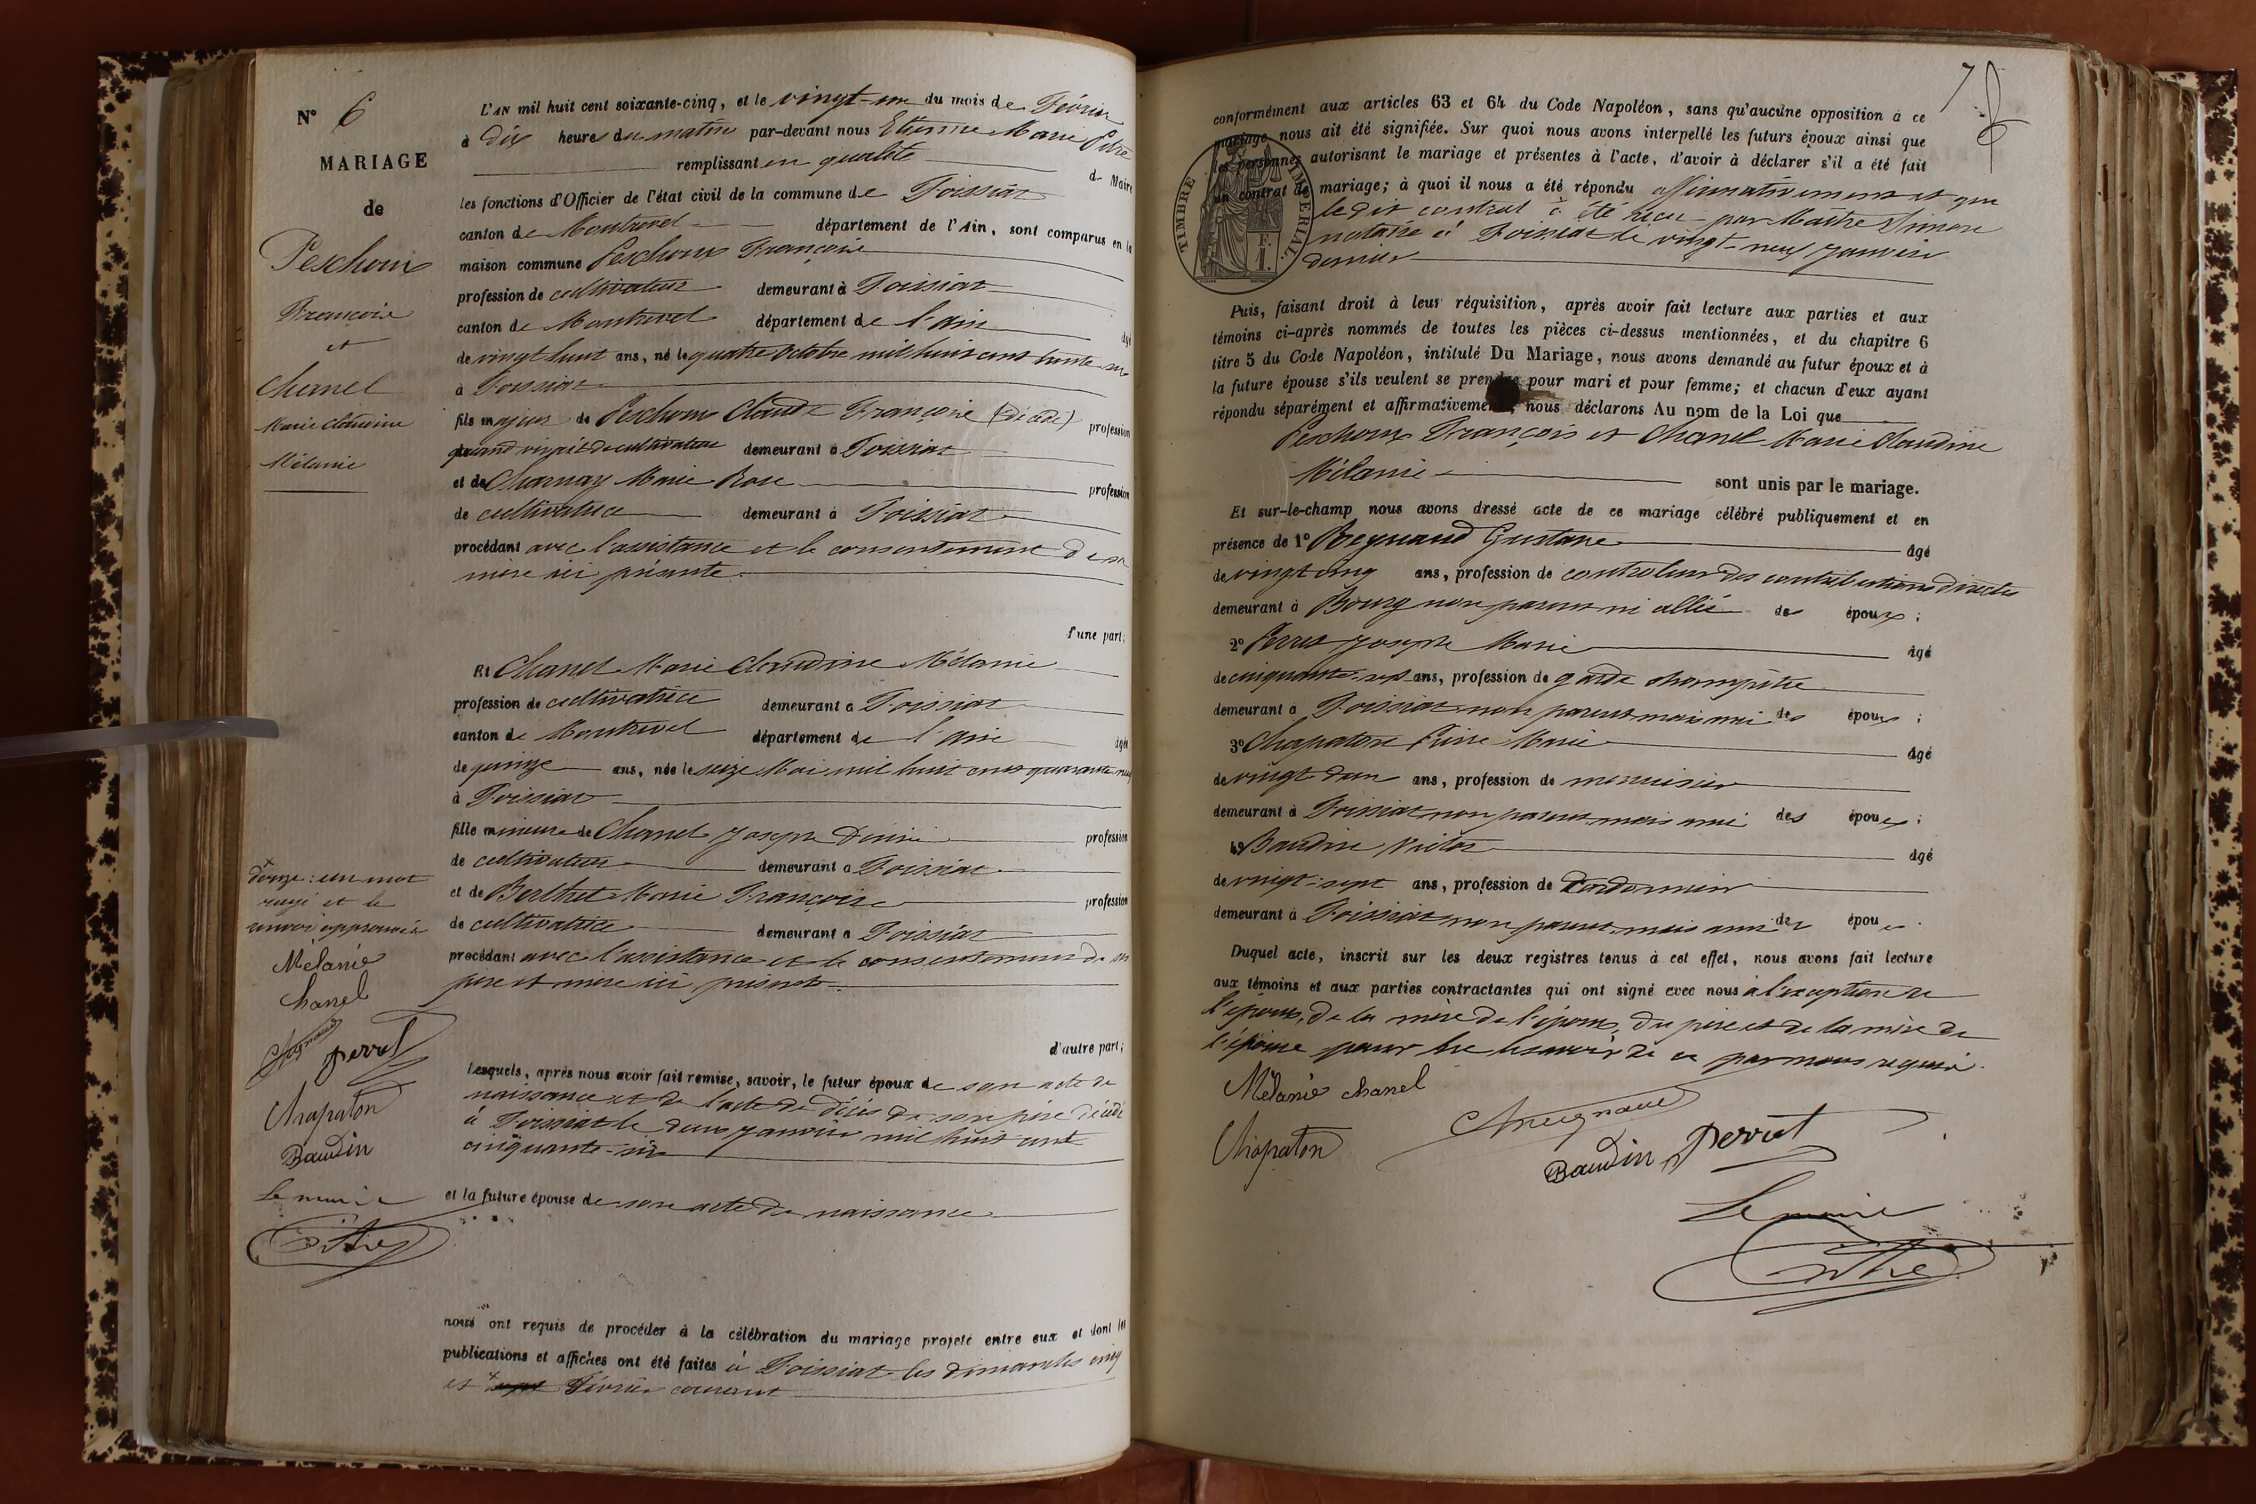 N° 6
MARIAGE
de
Peschoux
François
et
Chanel
Marie Claudine
Mélanie
L'AN mil huit cent soixante-cinq, et le vingt-un du mois de Février
à dix heures du matin par-devant nous Etienne Marie Pitre
remplissant en qualité de Maire
les fonctions d'Officier de l'état civil de la commune de Foissiat
canton de Montrevel département de l'Ain, sont comparus en la
maison commune Peschoux François
profession de cultivateur demeurant à Foissiat
canton de Montrevel département de l'ain âgé
de vingt huit ans, né le quatre Octobre mil huit cent trente-six
à Foissiat
fils majeur de Peschoux Claude François (décédé) profession
quand vivait de cultivateur demeurant à Foissiat
et de Charnay Marie Rose profession
de cultivatrice demeurant à Foissiat
procédant avec l'assistance et le consentement de sa
mère ici présente
d'une part;
Et Chanel Marie Claudine Mélanie
profession de cultivatrice demeurant à Foissiat
canton de Montrevel département de l'ain âgée
de quinze ans, née le seize Mai mil huit cent quarante neuf
à Foissiat
fille mineure de Chanel Joseph Denis profession
de cultivateur demeurant à Foissiat
et de Berthet Marie Françoise profession
de cultivatrice demeurant à Foissiat
procédant avec l'assistance et le consentement de ses
père et mère ici présents
d'autre part;
Lesquels, après nous avoir fait remise, savoir, le futur époux de son acte de
naissance et de l'acte de décès de son père décédé
à Foissiat le deux janvier mil huit cent
cinquante-six
et la future épouse de son acte de naissance
nous ont requis de procéder à la célébration du mariage projeté entre eux et dont les
publications et affiches ont été faites à Foissiat les dimanches cinq
et + Février courant
+ douze : un mot
rayé et le
renvoi approuvés
Mélanie
Chanel
Perret
Chapaton
Baudin
Le maire
Pitre
7
conformément aux articles 63 et 64 du Code Napoléon, sans qu'aucune opposition à ce
mariage nous ait été signifiée. Sur quoi nous avons interpellé les futurs époux ainsi que
les personnes autorisant le mariage et présentes à l'acte, d'avoir à déclarer s'il a été fait
un contrat de mariage; à quoi il nous a été répondu affirmativement et que
le dit contrat a été reçu par Maître Simon
notaire à Foissiat le vingt-neuf janvier
dernier
TIMBRE IMPÉRIAL
F.
1.
Puis, faisant droit à leur réquisition, après avoir fait lecture aux parties et aux
témoins ci-après nommés de toutes les pièces ci-dessus mentionnées, et du chapitre 6
titre 5 du Code Napoléon, intitulé Du Mariage, nous avons demandé au futur époux et à
la future épouse s'ils veulent se prendre pour mari et pour femme; et chacun d'eux ayant
répondu séparément et affirmativement, nous déclarons Au nom de la Loi que
Peschoux François et Chanel Marie Claudine
Mélanie sont unis par le mariage.
Et sur-le-champ nous avons dressé acte de ce mariage célébré publiquement et en
présence de 1° Reynaud Gustave âgé
de vingt cinq ans, profession de controleur des contributions directes
demeurant à Bourg non parent ni allié des époux;
2° Perret Joseph Marie âgé
de cinquante-sept ans, profession de garde champêtre
demeurant à Foissiat non parent mais ami des époux;
3° Chapaton Pierre Marie âgé
de vingt deux ans, profession de menuisier
demeurant à Foissiat non parent mais ami des époux;
4° Baudin Victor âgé
de vingt-sept ans, profession de Cordonnier
demeurant à Foissiat non parent mais ami des époux.
Duquel acte, inscrit sur les deux registres tenus à cet effet, nous avons fait lecture
aux témoins et aux parties contractantes qui ont signé avec nous à l'exception de
l'époux, de la mère de l'époux, du père et de la mère de
l'épouse pour ne le savoir de ce par nous requis.
Mélanie Chanel
Chapaton
Baudin Perret
Le maire
Pitre